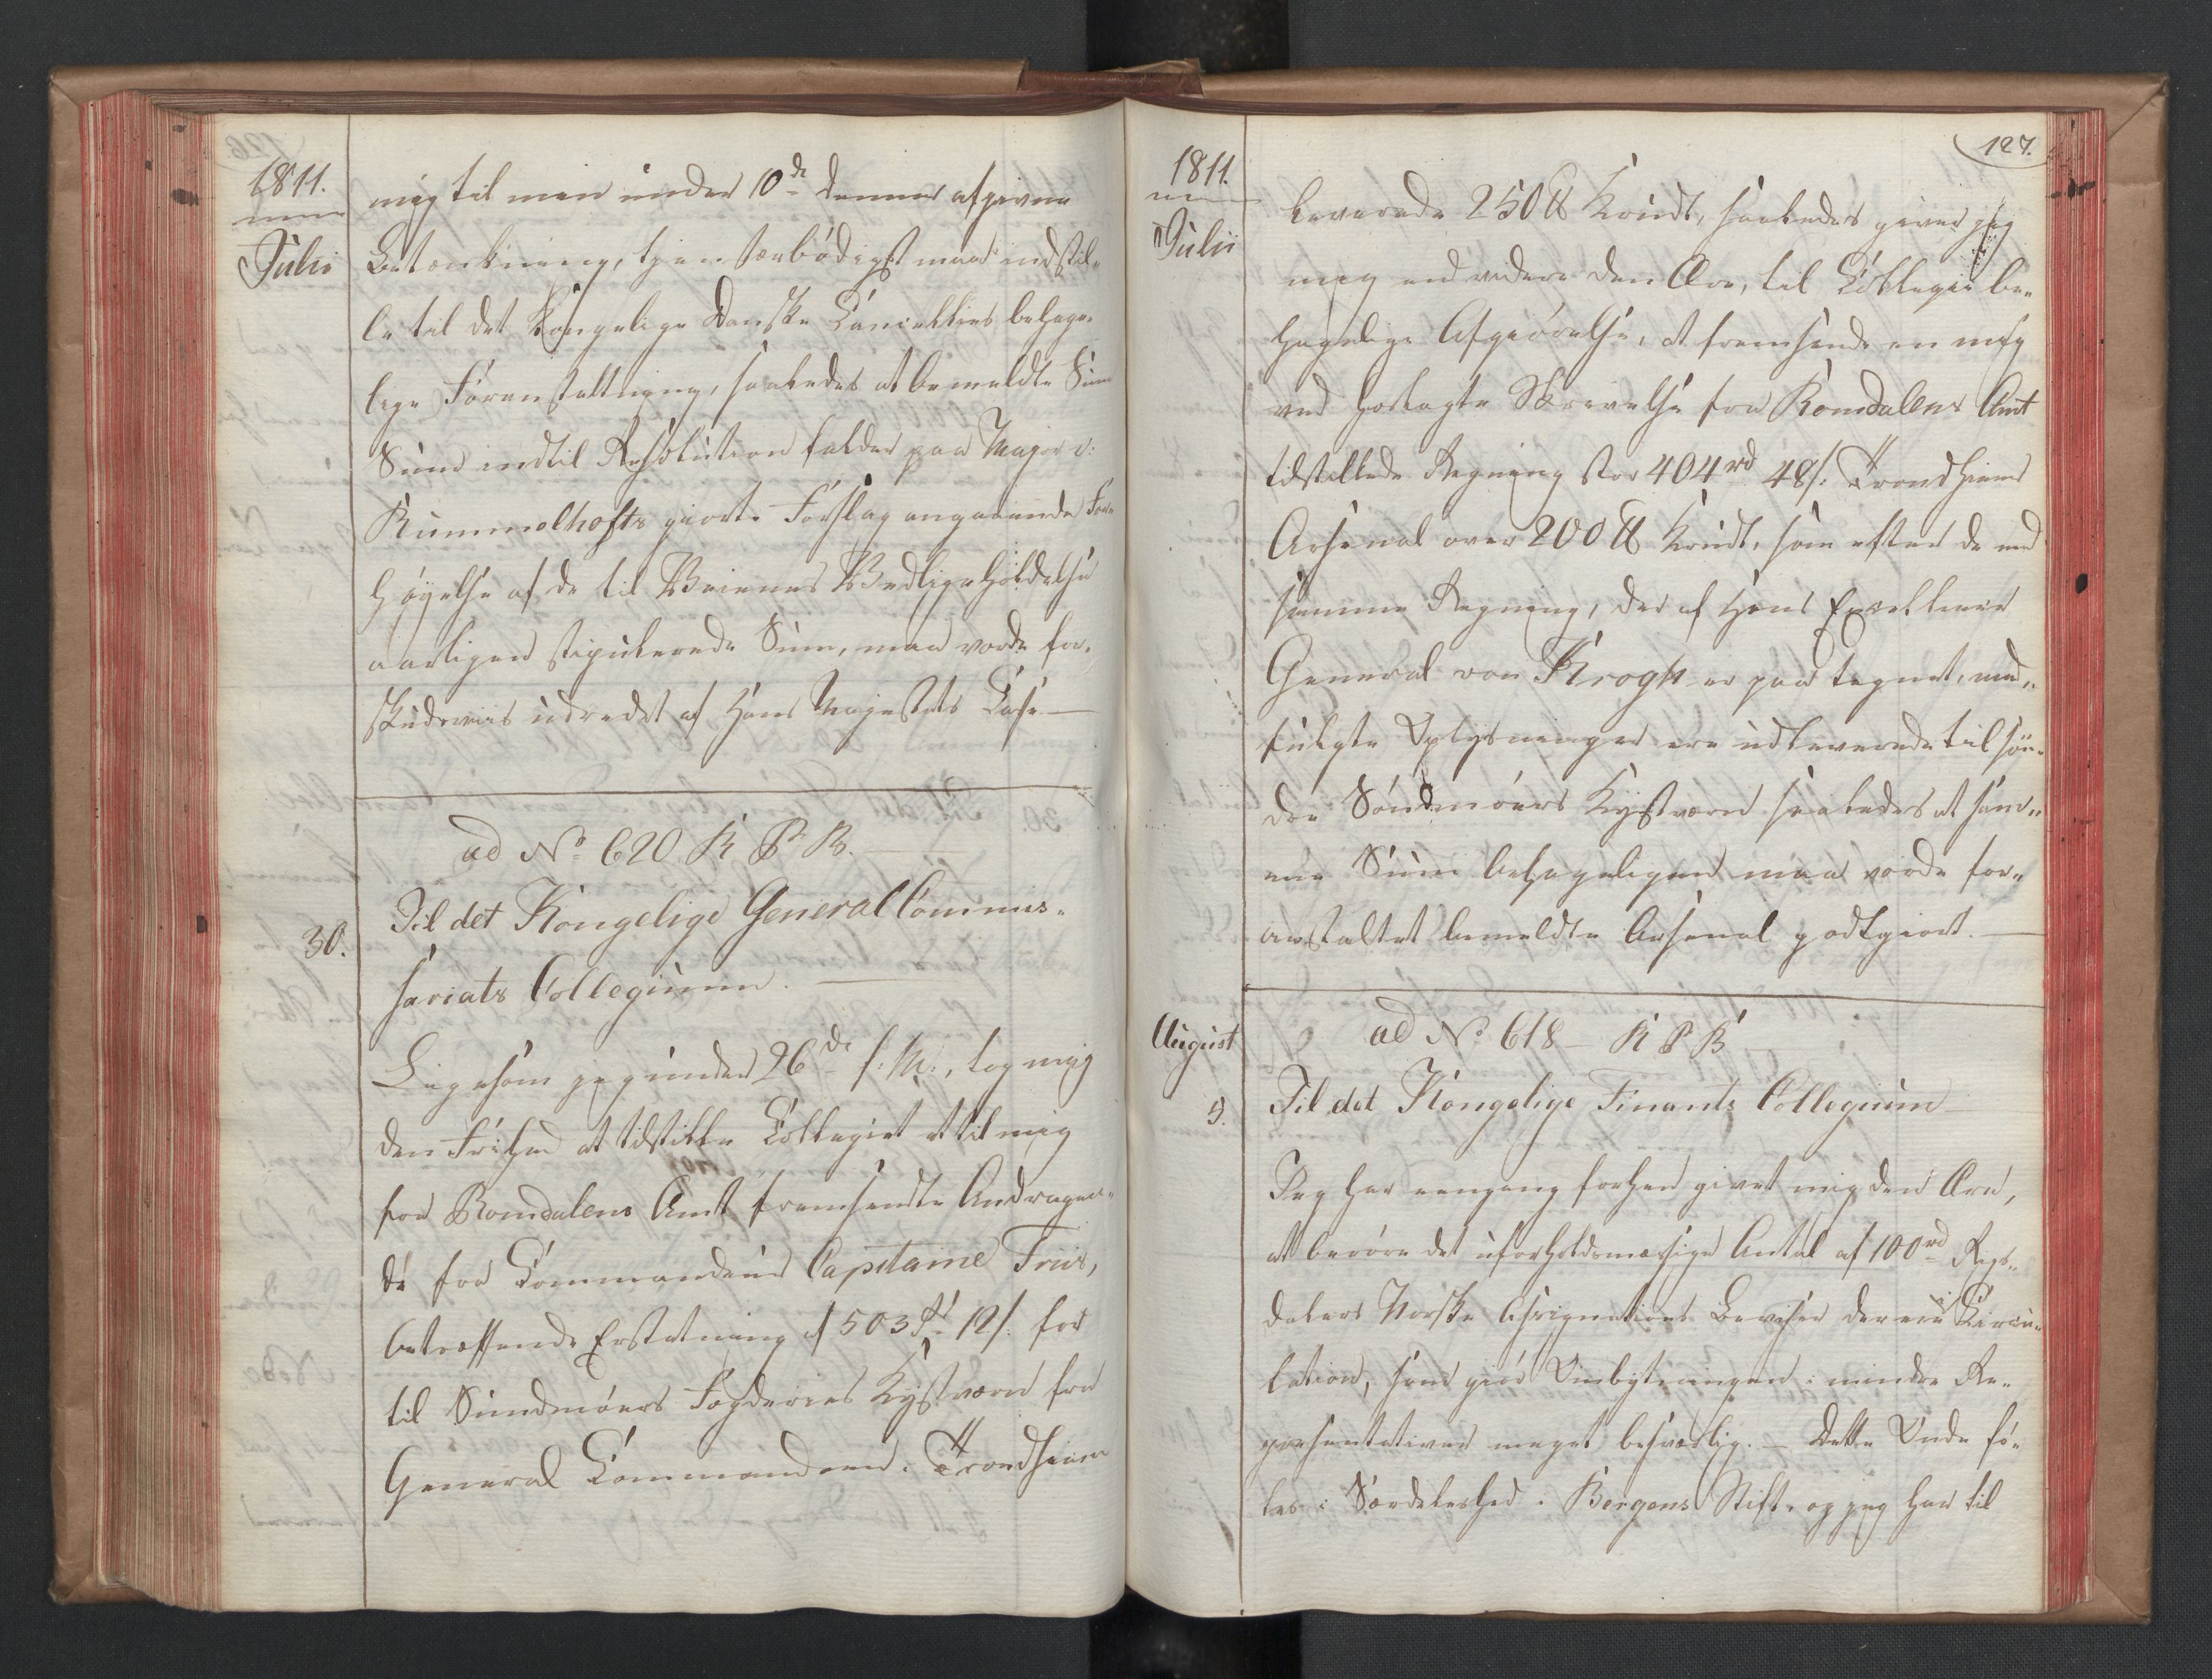 1811.
Julii
mig til min under 10de dennes afgivne
Betænkning, tienstærbødigst maae indstil-
le til det Kongelige Danske Cancellies behage-
lige Foranstaltning, saaledes at bemeldte Sum
Sum indtil Resolution falder paa Major v:
Kummelhofts giorte Forslag angaaende For-
høyelse af de til Veienes Vedligeholdelse
aarligen stipulerede Sum, maa vorde for-
skudsviis udredet af Hans Majestæts Casse
ad No 620 K P B.
30.
Til det Kongelige General Commis-
sariats Collegium.
Ligesom jeg under 26de f: M:, tog mig
den Frihed at tilstille Collegiet et til mig
fra Romdalens Amt fremsendte Andragen-
de fra Commandeur Capitaine Friis,
betreffende Erstatning af 503 rd 12 s. for
til Sundmøers Fogderies Kystværn fra
General Commandoen i Trondhiem
127.
1811.
Julii
leverede 250 ℔ Krudt, saaledes giver jeg
mig end videre den Ære, til Collegii be-
hagelige Afgiørelse, at fremsende en mig
ved hoslagte Skrivelse fra Romdalens Amt
tilstillede Regning stor 404 rd 48 s. Trondhiems
Arsenal over 200 ℔ Krudt, som efter de med
samme Regning, der af Hans Excellence
General von Krogh er paategnet, med-
fulgte Oplysninger ere udleverede til søn-
dre Søndmøers Kystværn saaledes at sam-
me Sum behageligen maa vorde for-
anstaltet bemeldte Arsenal godtgiort.
ad No 618 K P B
August
9.
Til det Kongelige Finants Collegium
Jeg har eengang forhen givet mig den Ære,
at berøre det uforholdsmæssige Antal af 100 rd Rigs-
dalers Norske Assignations Beviser der ere i Circu-
lation, som giør Ombytningen i mindre Re-
præsentativer meget besværlig. – Dette Onde fø-
les i Særdeleshed i Bergens Stift, og jeg har til